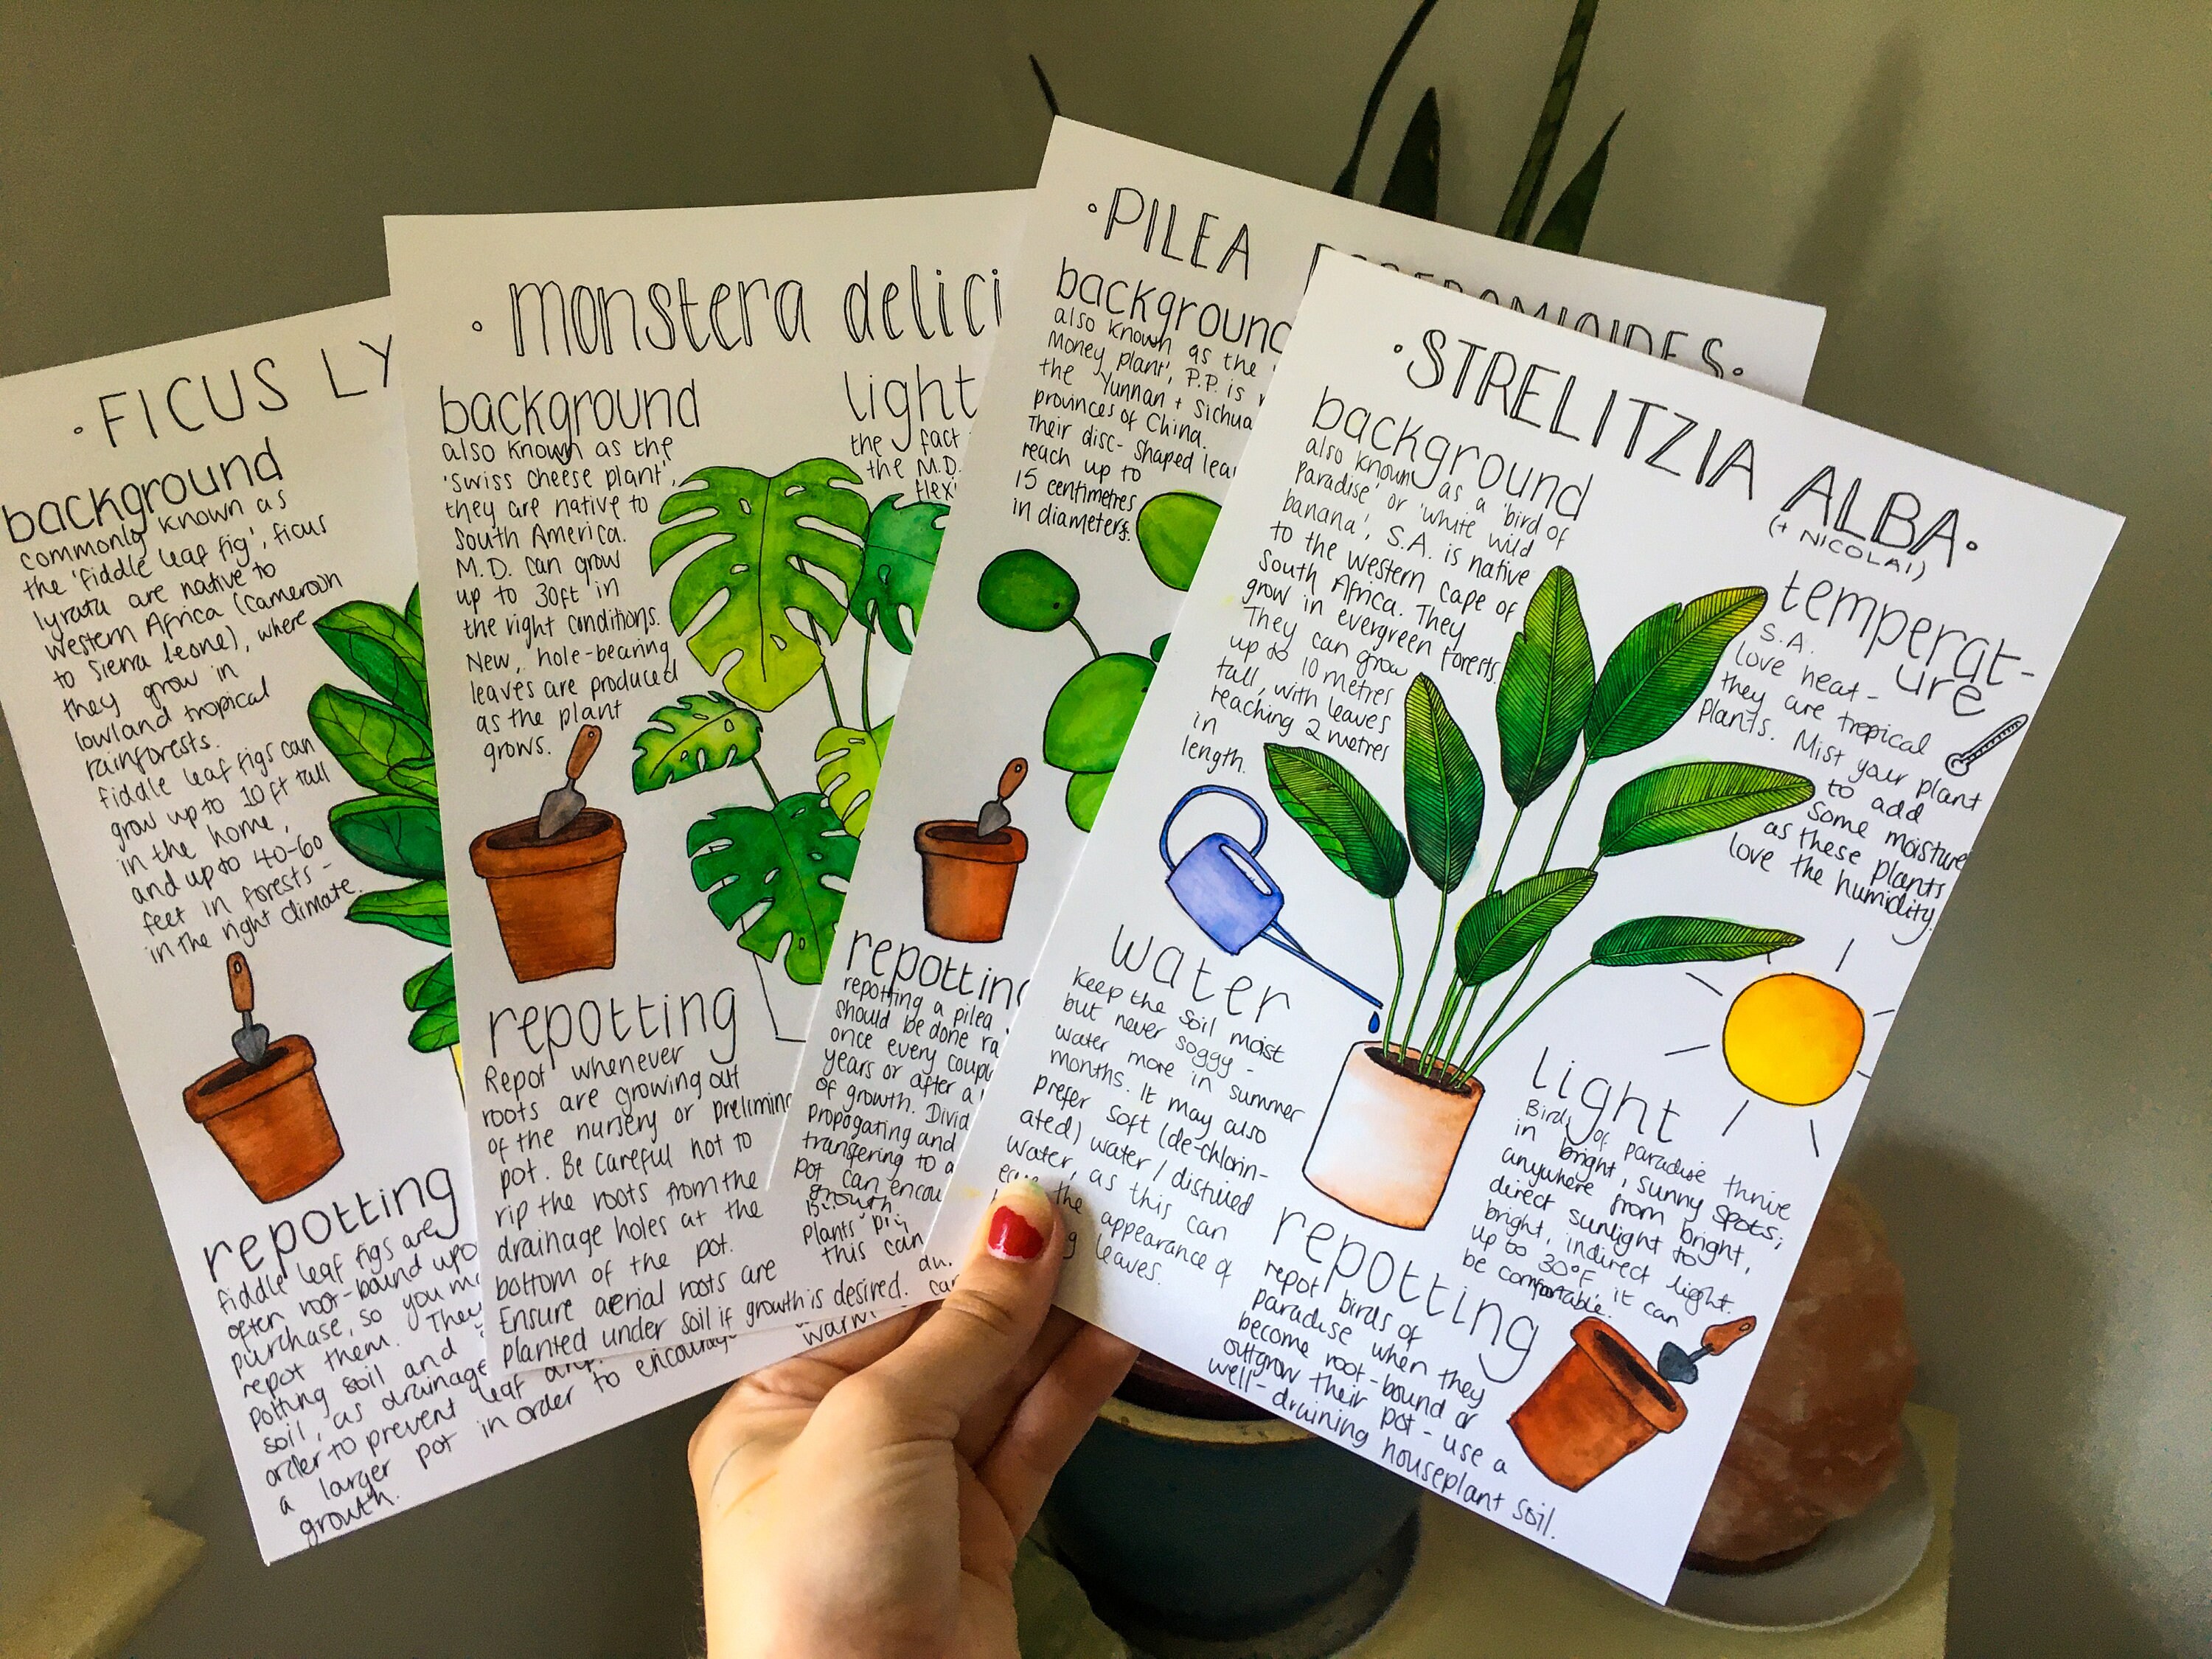 ·FICUS LY
background
commonly known as
the 'fiddle leaf fig', ficus
lyrata are native to
western Africa (Cameroon
to Sierra Leone), where
they grow in
lowland tropical
rainforests.
fiddle leaf figs can
grow up to 10ft tall
in the home,
and up to 40-60
feet in forests -
in the right climate.
repotting
fiddle leaf figs are
often root-bound upo
purchase, so you m
repot them. They
potting soil and
soil, as drainage
order to prevent leaf
a larger pot in order to encourage
growth.
·monstera delici
background
also known as the
'Swiss cheese plant',
they are native to
South America.
M.D. can grow
up to 30ft in
the right conditions.
New, hole-bearing
leaves are produced
as the plant
grows.
light
the fact
the M.D.
flex
repotting
Repot whenever
roots are growing out
of the nursery or prelimin
pot. Be careful not to
rip the roots from the
drainage holes at the
bottom of the pot.
Ensure aerial roots are
planted under soil if growth is desired.
·PILEA PEPEROMIOIDES·
background
also known as the
Money plant', P.P. is
the Yunnan + Sichua
provinces of China.
Their disc-shaped lea
reach up to
15 centimetres
in diameters.
repotting
repotting a pilea
should be done ra
once every coupl
years or after a
of growth. Divid
propogating and
transfering to a
pot can encou
growth.
Plants
this can
warm
·STRELITZIA ALBA·
(+ NICOLAI)
background
also known as a 'bird of
paradise' or 'white wild
banana', S.A. is native
to the western cape of
South Africa. They
grow in evergreen forests.
They can grow
up to 10 metres
tall, with leaves
reaching 2 metres
in
length.
temperat-
ure
S.A.
love heat -
they are tropical
plants. Mist your plant
to add
some moisture
as these plants
love the humidity.
water
Keep the soil moist
but never soggy -
water more in summer
months. It may also
prefer soft (de-chlorin-
ated) water / distilled
water, as this can
the appearance of
leaves.
light
Birds of paradise thrive
in bright, sunny spots;
anywhere from bright,
direct sunlight to
bright, indirect light.
up to 30°F it can
be comfortable.
repotting
repot birds of
paradise when they
become root-bound or
outgrow their pot - use a
well-draining houseplant soil.